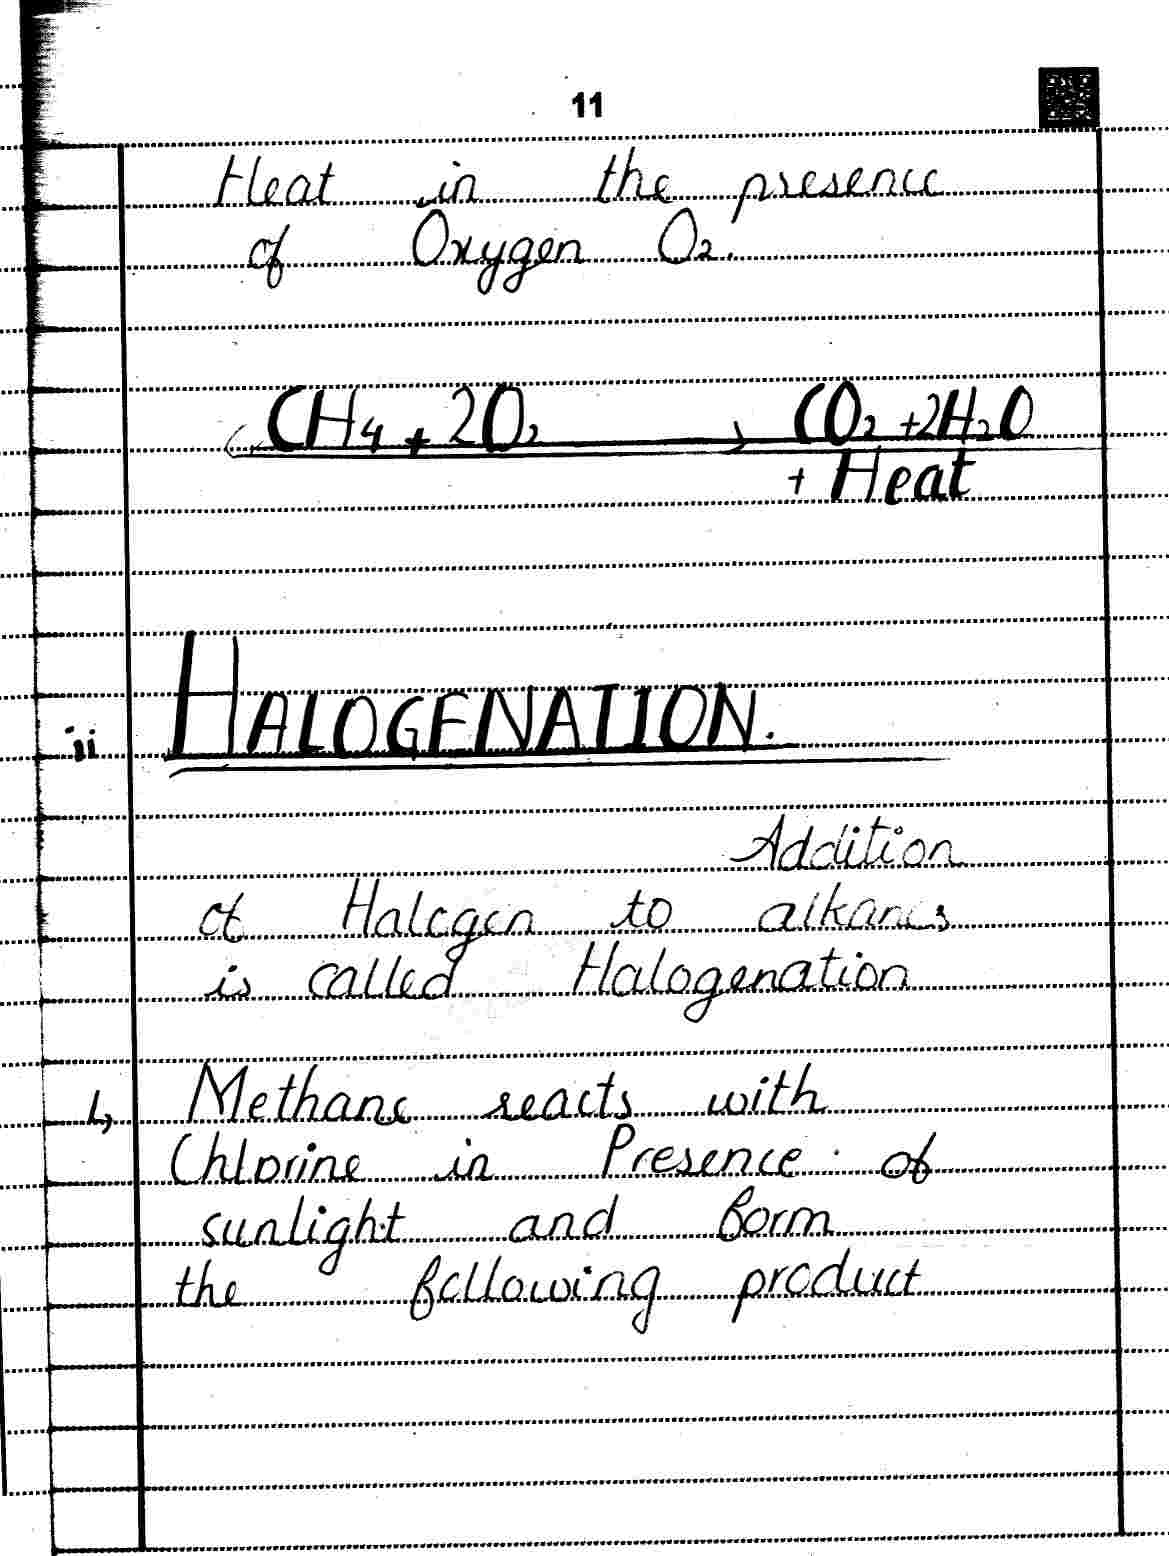 11
Heat in the presence
of Oxygen O₂.
CH₄ + 2O₂ → CO₂ + 2H₂O
+ Heat
ii HALOGENATION.
Addition
of Halogen to alkanes
is called Halogenation
↳ Methane reacts with
Chlorine in Presence of
sunlight and form
the following product